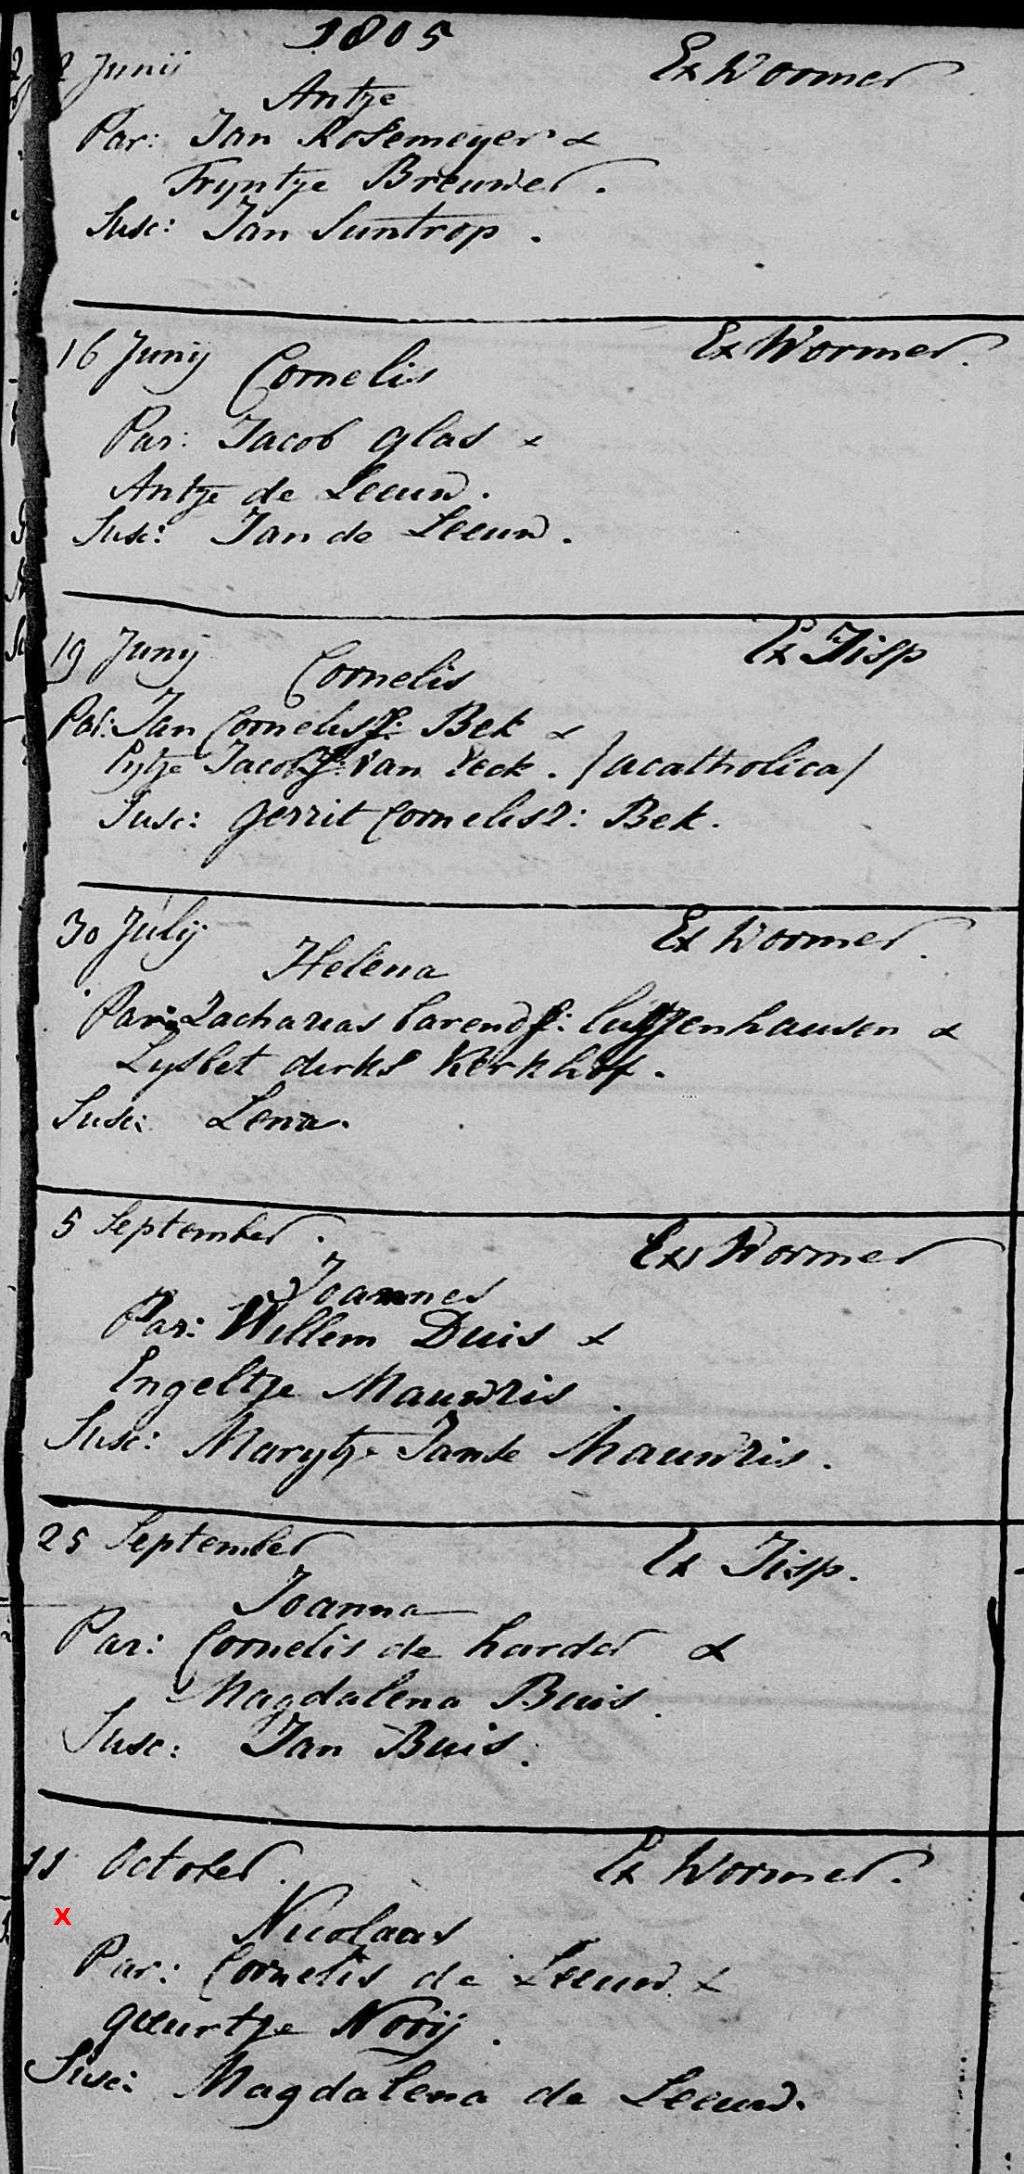 1805
2 Junii Ex Wormer
Antje
Par: Jan Rosemeyer &
Tryntje Breuwer.
Susc: Jan Suntrop.
16 Junij Ex Wormer.
Cornelis
Par: Jacob glas &
Antje de Leeuw.
Susc: Jan de Leeuw.
19 Junij Ex Jisp
Cornelis
Par: Jan Cornelisz: Bek &
Pytje Jacobsz: Van Veck. /acatholica/
Susc: gerrit Cornelisz: Bek.
30 Julij Ex Wormer.
Helena
Par: Zacharias barendsz: &
Lysbet dirks Kerkhof.
Susc: Lena.
5 September. Ex Wormer
Joannes
Par: Willem Duis &
Engeltje Mauwris.
Susc: Marytje Janse Mauwris.
25 September Ex Jisp.
Joanna
Par: Cornelis de harder &
Magdalena Buis.
Susc: Jan Buis.
11 October. Ex Wormer.
x
Nicolaas
Par: Cornelis de Leeuw &
geurtje Nooij.
Susc: Magdalena de Leeuw.